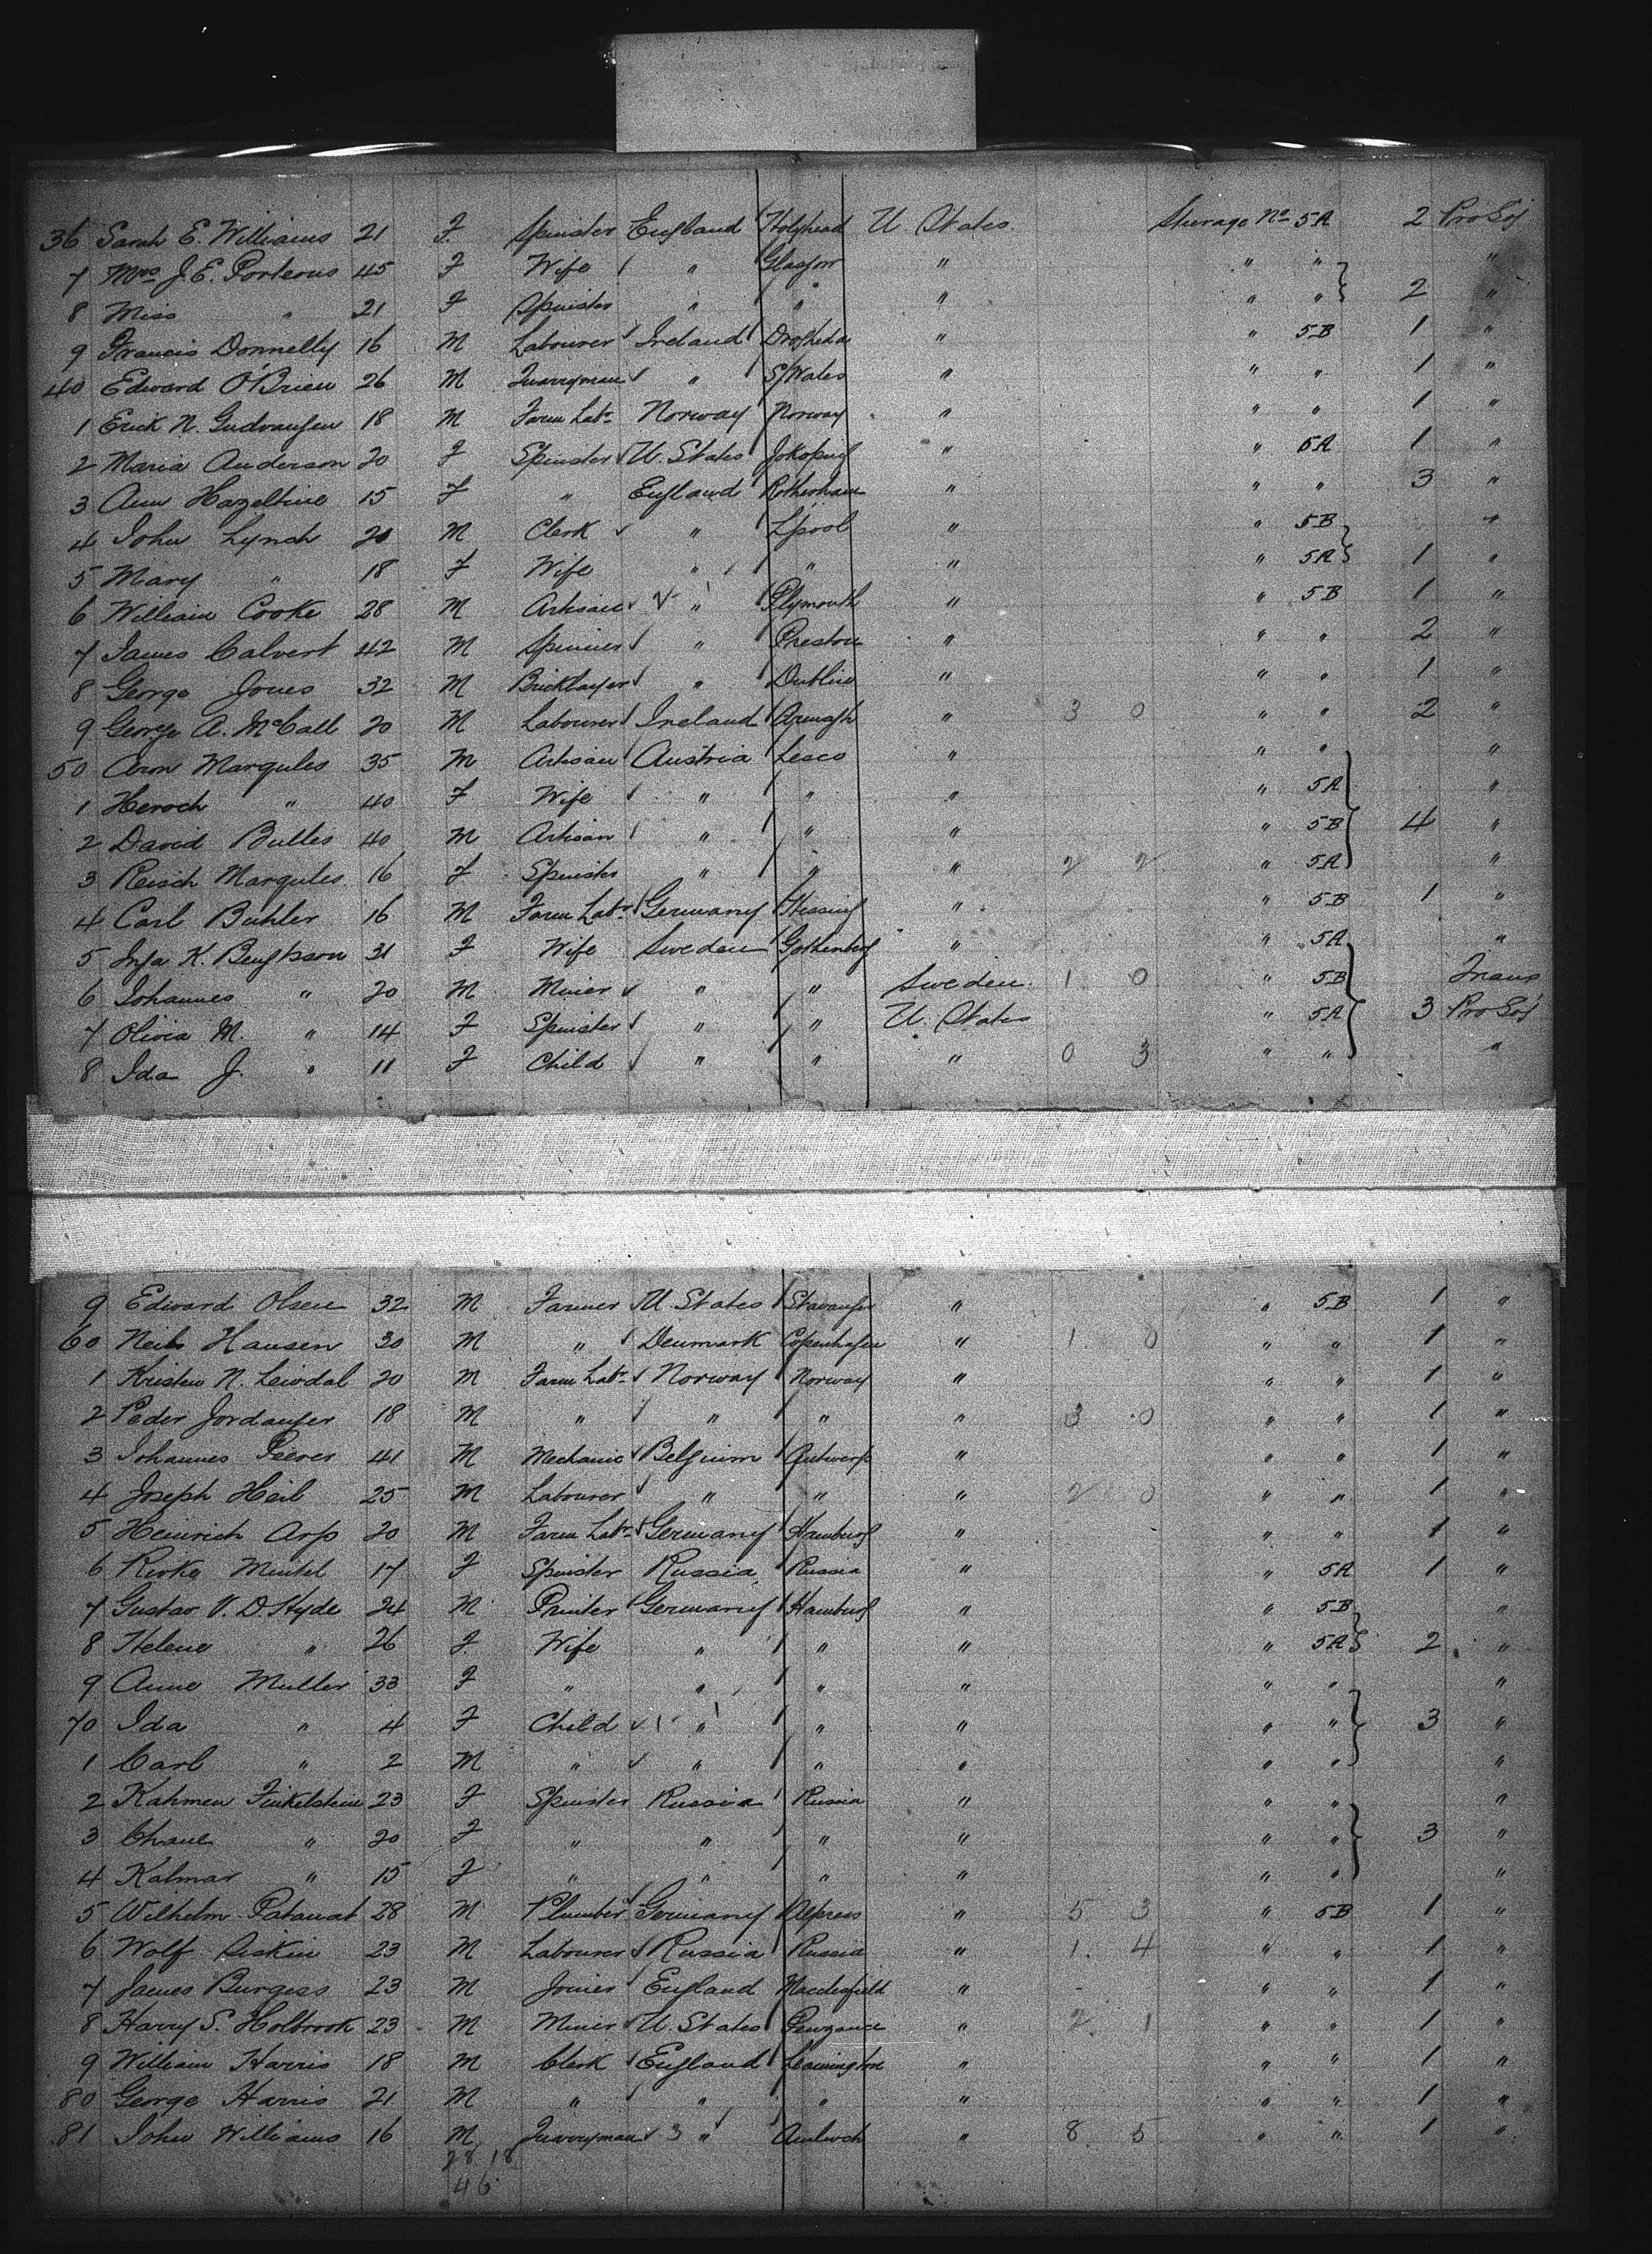 36 Sarah E. Williams 21 F. Spinster England Holyhead U. States Steerage No 5A 2 Pro Soj
7 Mrs J. E. Porteous 45 F Wife " Glasgow " " " "
8 Miss " 21 F Spinster " " " " " 2 "
9 Francis Donnelly 16 M Labourer Ireland Drogheda " " 5B 1 "
40 Edward O'Brien 26 M Quarryman " S/Wales " " " 1 "
1 Erick N. 18 M Farm Labr Norway Norway " " " 1 "
2 Maria Anderson 20 F Spinster U. States " " 5A 1 "
3 Ann Hazeltine 15 F " England Rotherham " " " 3 "
4 John Lynch 20 M Clerk " Lpool " " 5B "
5 Mary " 18 F Wife " " " " 5A 1 "
6 William Cooke 28 M Artisan " Plymouth " " 5B 1 "
7 James Calvert 42 M Spinner " Preston " " " 2 "
8 George Jones 32 M Bricklayer " Dublin " " " 1 "
9 George A. McCall 20 M Labourer Ireland Armagh " 3 0 " " 2 "
50 Aron Margules 35 M Artisan Austria Lesco " " " "
1 Henoch " 40 F Wife " " " " 5A "
2 David Bulles 40 M Artisan " " " " 5B 4 "
3 Reisch Margules 16 F Spinster " " " 2 2 " 5A "
4 Carl Buhler 16 M Farm Labr Germany " " 5B 1 "
5 Inga K. Bengtsson 31 F Wife Sweden Gothenberg " " 5A "
6 Johannes " 20 M Miner " " Sweden 1 0 " 5B Trans
7 Olivia M. " 14 F Spinster " " U. States " 5A 3 Pro Soj
8 Ida J. " 11 F Child " " " 0 3 " " "
9 Edward Olsen 32 M Farmer U. States Stavanger " " 5B 1 "
60 Neils Hansen 30 M " Denmark Copenhagen " 1 0 " " 1 "
1 Kristen N. Leirdal 20 M Farm Labr Norway Norway " " " 1 "
2 Peder Jordanger 18 M " " " " 3 0 " " 1 "
3 Johannes 41 M Mechanic Belgium Antwerp " " " 1 "
4 Joseph Heil 25 M Labourer " " " 2 0 " " 1 "
5 Heinrich Arp 20 M Farm Labr Germany Hamburg " " " 1 "
6 Rivke Mintel 17 F Spinster Russia Russia " " 5A 1 "
7 Gustav V. D. Hyde 24 M Printer Germany Hamburg " " 5B "
8 Helene " 26 F. Wife " " " " 5A 2 "
9 Anne Muller 33 F " " " " " " "
70 Ida " 4 F Child " " " " " 3 "
1 Carl " 2 M " " " " " " "
2 Kahmen Finkelstein 23 F Spinster Russia Russia " " " "
3 Chane " 20 F " " " " " " 3 "
4 Kalmar " 15 F " " " " " " "
5 Wilhelm 28 M Plumber Germany " 5 3 " 5B 1 "
6 Wolf Siskin 23 M Labourer Russia Russia " 1. 4 " " 1 "
7 James Burgess 23 M Joiner England Macclesfield " - " " 1 "
8 Harry S. Holbrook 23 M Miner U. States Penzance " 2 1 " " 1 "
9 William Harris 18 M Clerk England Leamington " " " 1 "
80 George Harris 21 M " " " " " " 1 "
81 John Williams 16 M Quarryman 3 " Amlwch " 8 5 " " 1 "
28 18
46